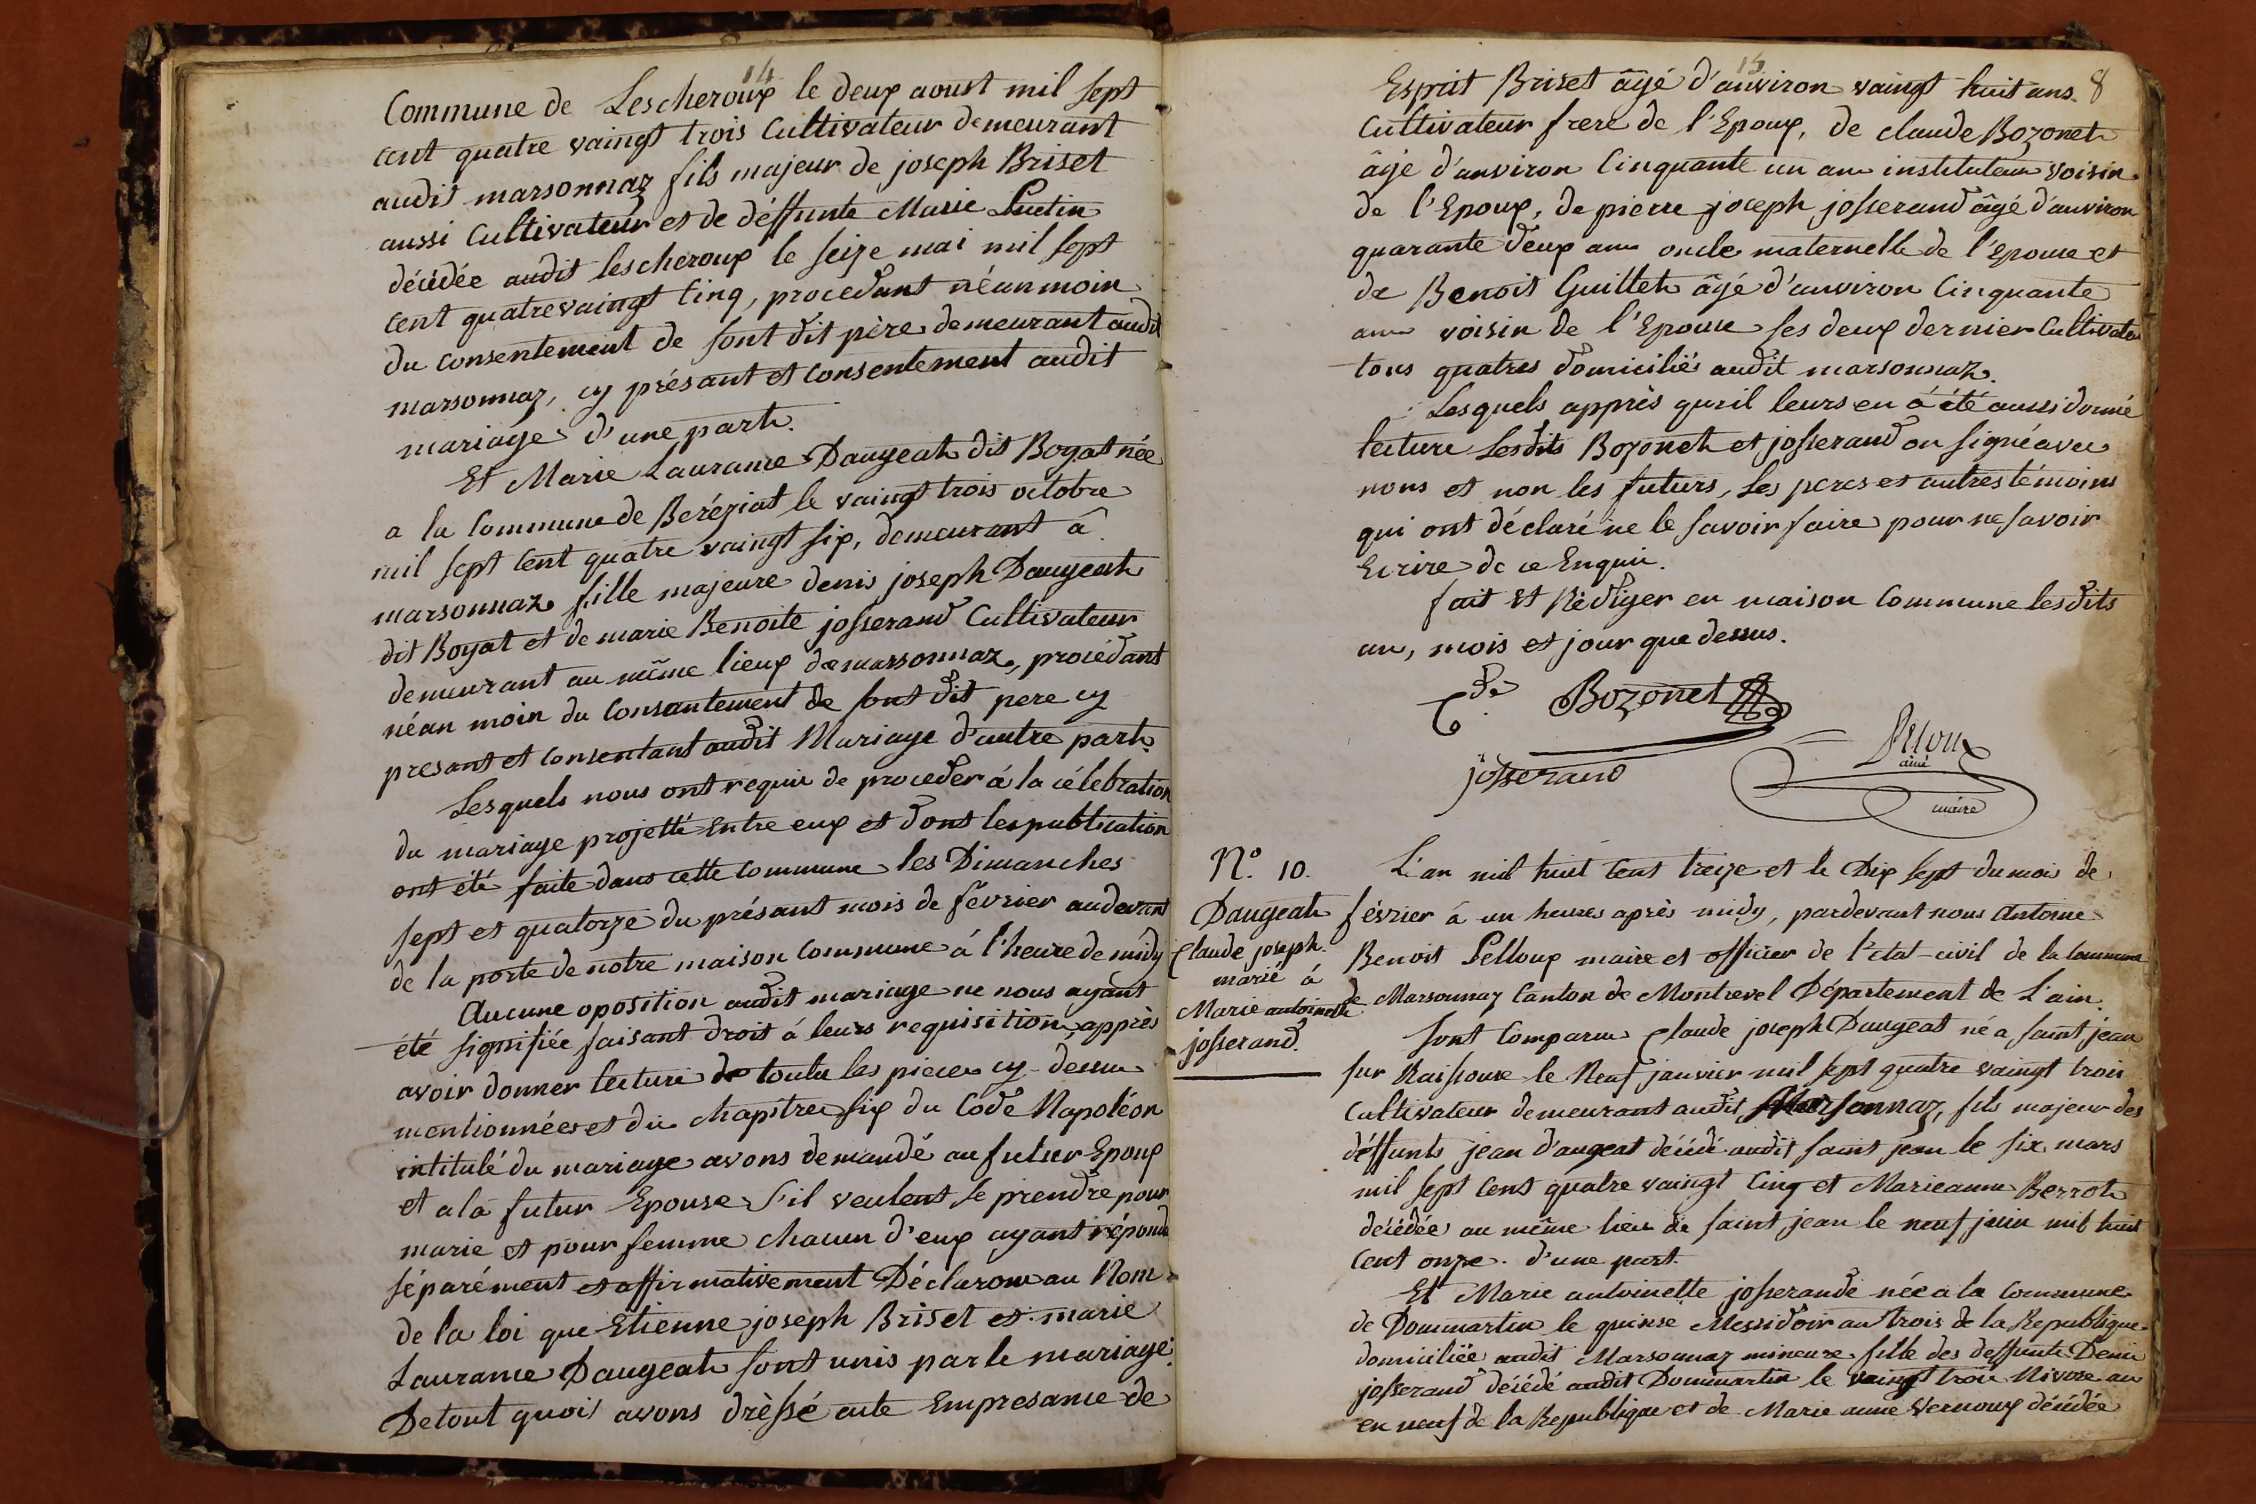 14
Commune de Lescheroux le deux aoust mil sept
cent quatre vaingt trois Cultivateur demeurant
audit marsonnaz fils majeur de joseph Briset
aussi Cultivateur et de déffunte Marie
décédée audit lescheroux le seize mai mil sept
cent quatrevaingt Cinq, procedant néanmoin
du consentement de sont dit père demeurant audit
marsonnaz, cy présant et consentement audit
mariage d'une part.
Et Marie Laurance Daugeat dit Boyat née
a la Commune de Beréziat le vaingt trois octobre
mil sept cent quatre vaingt six, demeurant â
marsonnaz fille majeure denis joseph Daugeat
dit Boyat et de marie Benoite josserand Cultivateur
demeurant au même lieux de marsonnaz, procedant
néan moin du Consantement de sont dit pere cy
presant et consentant audit Mariage d'autre part.
Lesquels nous ont requis de proceder á la célebration
du mariage projetté Entre eux et dont les publication
ont été faite dans cette Commune les Dimanches
sept et quatorze du présant mois de février audevant
de la porte de notre maison Commune á l'heure de midy
Aucune oposition audit mariage ne nous ayant
été signifiée faisant droit á leurs requisition, apprès
avoir donner lecture de toute les pieces cy-dessu
mentionnées et du chapitre six du Code Napoléon
intitulé du mariage avons demandé au futur Epoux
et a la futur Epouse s'il veulent se prendre pour
marie et pour femme chacun d'eux ayant répondu
séparément et affirmativement Déclarons au Nom
de la loi que Etienne joseph Briset et marie
Laurance Daugeat sont unis par le mariage.
De tout quoi avons drèssé acte Empresance de
15
Esprit Briset âgé d'anviron vaingt huit ans 8
Cultivateur frere de l'Epoux, de claude Bozonet
âgé d'anviron Cinquante un ans instituteur voisin
de l'Epoux, de pierre joseph josserand âgé d'anviron
quarante deux ans oncle maternelle de l'Epouse et
de Benoit Guillet âgé d'anviron Cinquante
ans voisin de l'Epouse ses deux dernier Cultivateu
tous quatres domiciliés audit marsonnaz.
Lesquels apprès qu'il leurs en á été aussi donné
lecture Lesdits Bozonet et josserand on signé avec
nous et non les futurs, Les peres et autres témoins
qui ont déclaré ne le savoir faire pour ne savoir
Ecrire de ce Enquis.
fait et Rédiger en maison Commune lesdits
an, mois et jour que dessus.
Bozonet
josserand
ainé
maire
N.° 10.
Daugeat
Claude joseph
marié á
Marie antoinette
josserand.
L'an mil huit cent treize et le Dix sept du mois de
février á un heures après midy, pardevant nous Antoine
Benoit Pelloux maire et officier de l'etat-civil de la Commune
de Marsonnaz Canton de Montrevel Département de L'ain.
Sont Comparus Claude joseph Daugeat né a saint jean
sur Raissouse le Neuf janvier mil sept quatre vaingt trois
Cultivateur demeurant audit Marsonnaz, fils majeur des
déffunts jean d'augeat décédé audit saint jean le six mars
mil sept cent quatre vaingt Cinq et Marieanne Berrot
décédée au même lieu de saint jean le neuf juin mil huit
cent onze. d'une part.
Et Marie antoinette josserande née a la Commune
de Dommartin le quinse Messidoir an trois de la Republique
domiciliée audit Marsonnaz mineure fille des deffunts Denis
josserand décédé audit Dommartin le vaingt trois Nivose an
en neuf de la Republique et de Marie anne Vernoux décédée